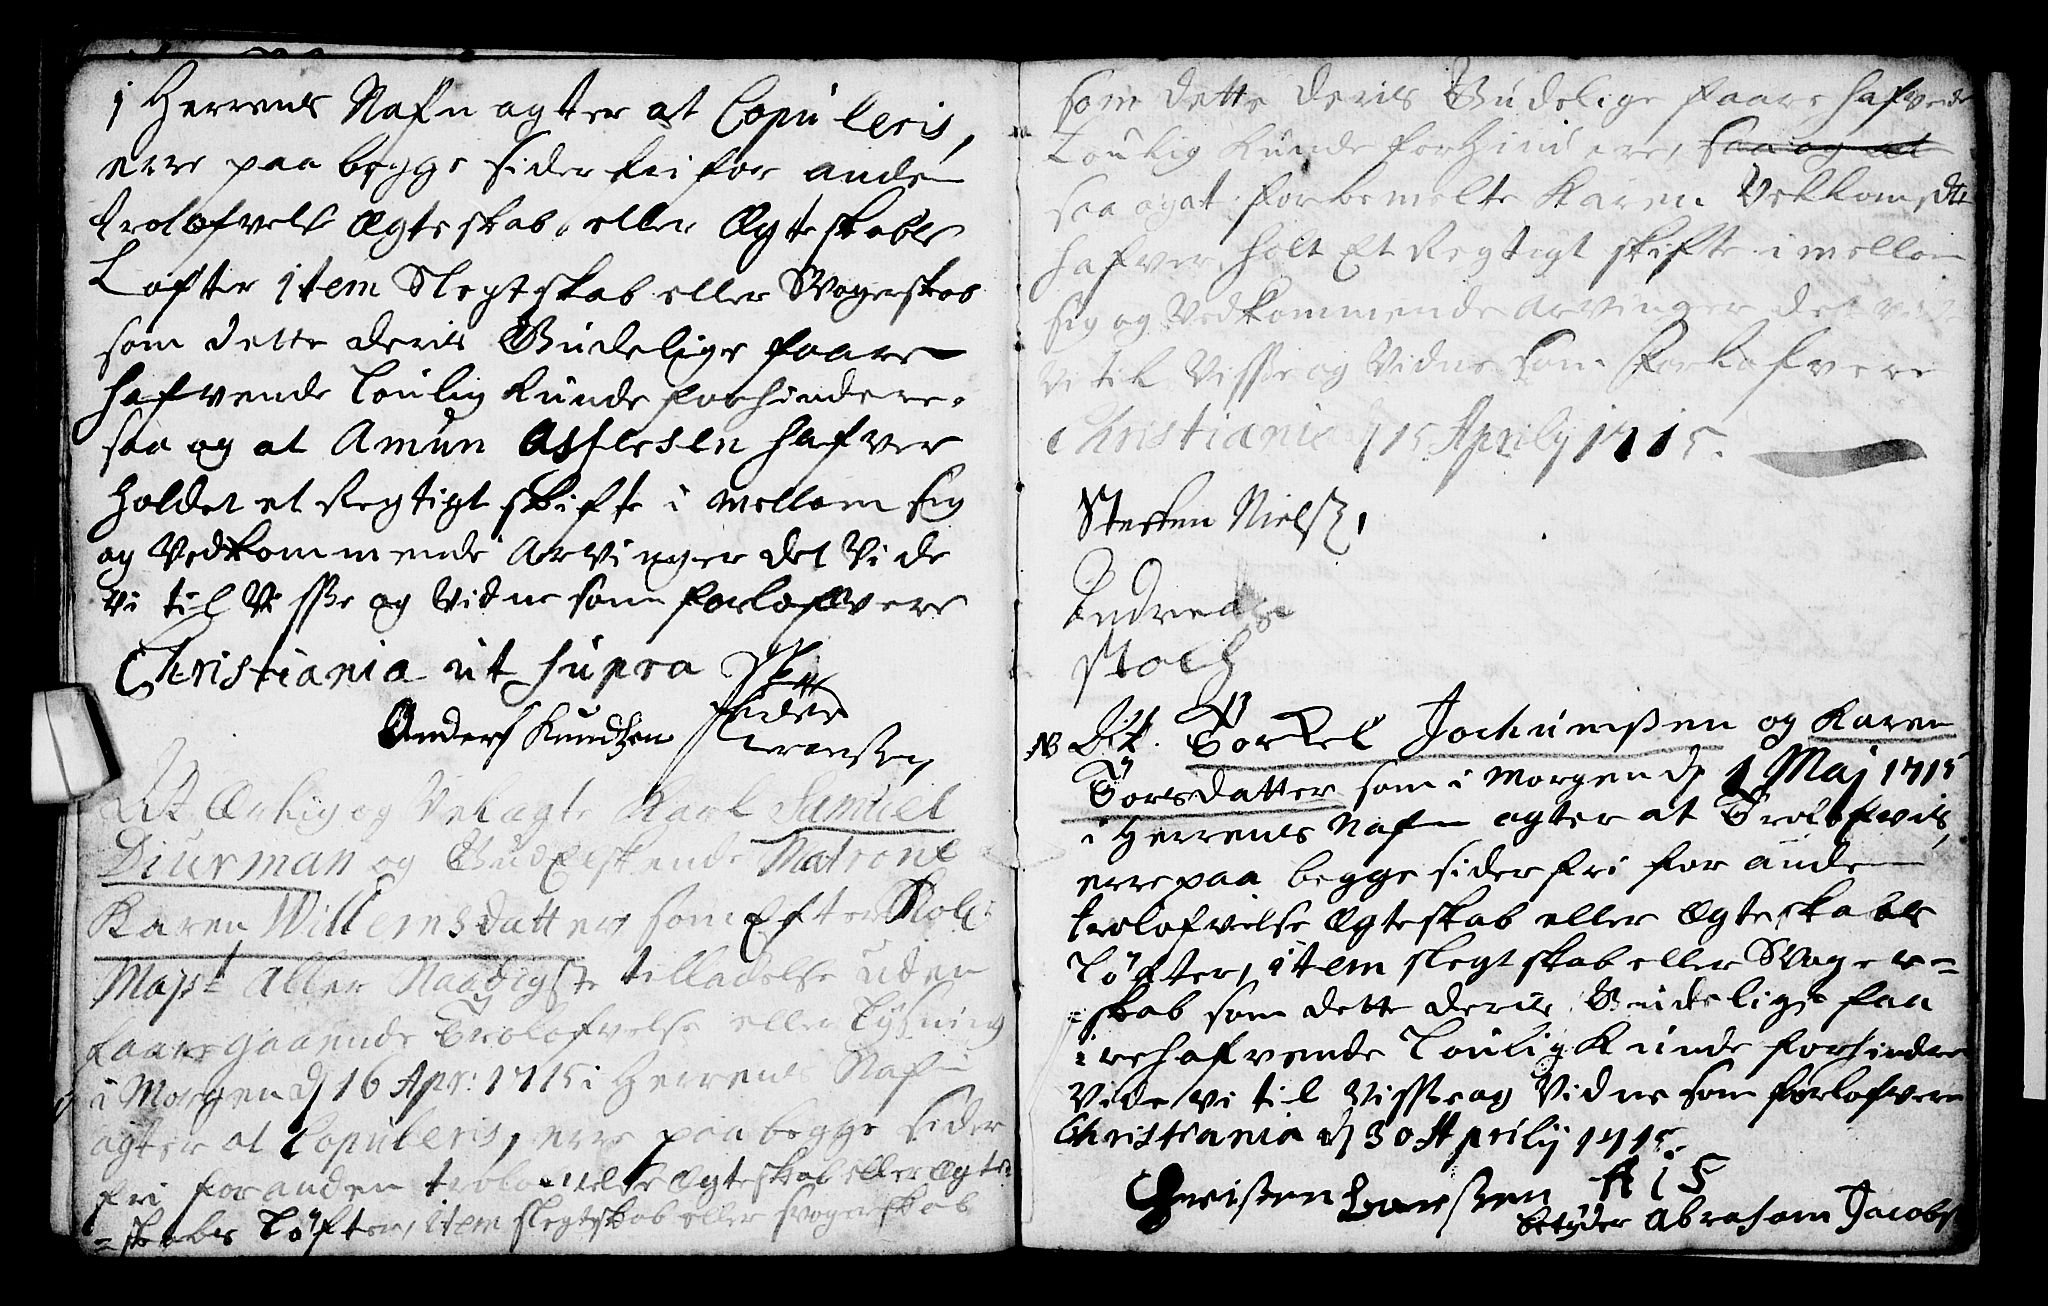 i Herrens Nafn agter at Copuleris,
erre paa begge sider fri for anden
trolofvelse Ægteskab eller Ægteskabs
Løfter item Slegtskab eller Svogerskab
som dette deris Gudelige faare-
hafvende Loulig kunde forhindere,
saa og at Amun Asslesen hafver
holdet et Regtigt skifte i mellom sig
og Vedkommende Arvinger det Vide
Vi til Visse og Vidne som forlofvere
Christiania ut supra
Anders Knudtzen
Dit Ærlig og Velagte Karl Samuel
Diurman og Gudelskende Matrone
Karen Willemsdatter som Efter Kol:
Majst Aller Naadigste tilladelse uden
faaregaaende Trolofvelse eller Lysning
i Morgen d 16 Apr: 1715 i Herrens Nafn
agter at Copuleris, erre paa begge sider
fri for anden trolofvelse Ægteskab eller Ægte=
=skabs Løfter, item slegtskab eller svogerskab
som dette deris Gudelige faare hafvende
Loulig kunde forhindere, saa og at
saa og at forbemelte Karen Vellomsdtr
hafver holt Et Regtigt skifte i mellom
sig og Vedkommende Arvinger det vide
Vi til Visse og Vidne som Forlofvere
Christiania d 15 Aprily 1715.
Steffen Nielsz,
Andreas
Stoch
NB Dit. Torkel Jochumssen og Karen
Torsdatter som i Morgen d 1 Maj 1715
i Herrens Nafn agter at Trolofvis,
erre paa begge sider fri for anden
trolofvelse Ægteskab eller Ægteskabs
Løfter, item slegtskab eller Svoger=
=skab som dette deris Gudelige faa
=rehafvende Loulig Kunde forhindre
Vide vi til Visse og Vidne som forlofvere
Christiania d 30 Aprily 1715.
Christen Larssen A I S
betyder Abraham Jacobs